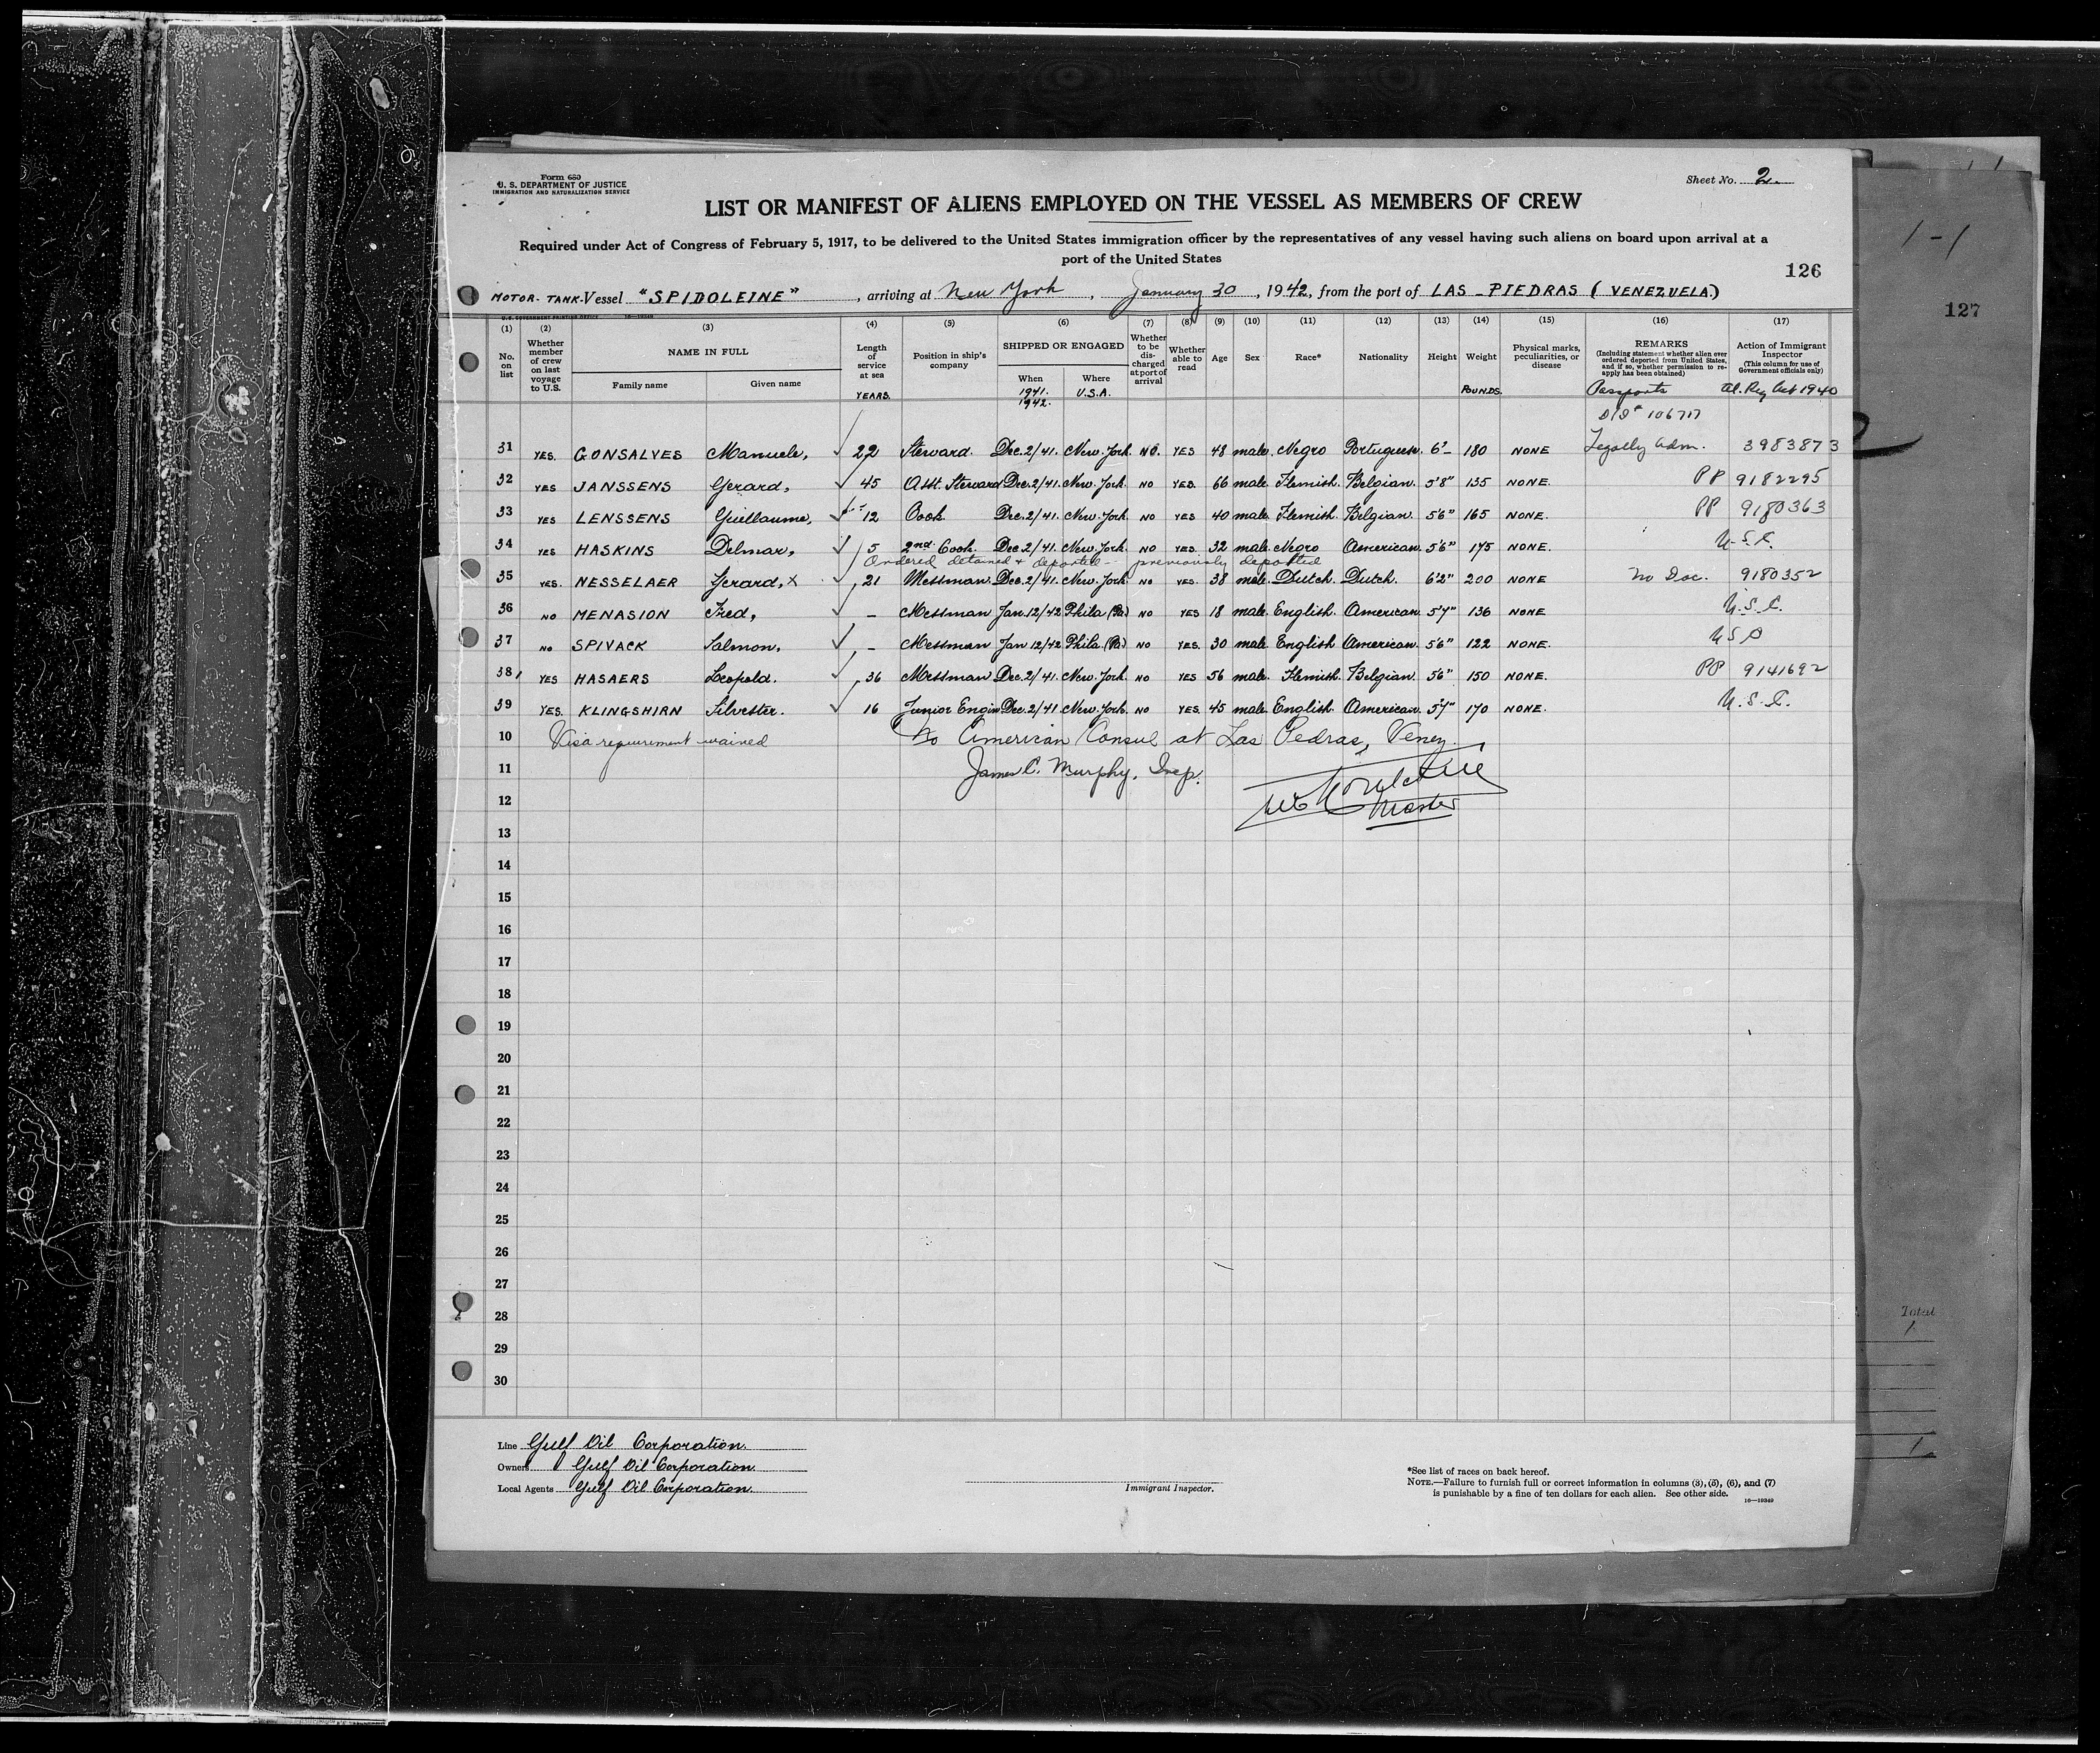 Form 680
U. S. DEPARTMENT OF JUSTICE
IMMIGRATION AND NATURALIZATION SERVICE
Sheet No. 2.
LIST OR MANIFEST OF ALIENS EMPLOYED ON THE VESSEL AS MEMBERS OF CREW
Required under Act of Congress of February 5, 1917, to be delivered to the United States immigration officer by the representatives of any vessel having such aliens on board upon arrival at a
port of the United States
126
MOTOR-TANK-Vessel "SPIDOLEINE", arriving at New York, January 30, 1942, from the port of LAS-PIEDRAS (VENEZUELA.)
U.S. GOVERNMENT PRINTING OFFICE 16—19349
(1) (2) (3) (4) (5) (6) (7) (8) (9) (10) (11) (12) (13) (14) (15) (16) (17)
No. on list
Whether member of crew on last voyage to U.S.
NAME IN FULL
Family name Given name
Length of service at sea
YEARS.
Position in ship's company
SHIPPED OR ENGAGED
When Where
1941. U.S.A.
1942.
Whether to be discharged at port of arrival
Whether able to read
Age Sex Race* Nationality Height Weight
POUNDS.
Physical marks, peculiarities, or disease
REMARKS
(Including statement whether alien ever ordered deported from United States, and if so, whether permission to reapply has been obtained)
Passports
Action of Immigrant Inspector
(This column for use of Government officials only)
Al. Reg Act 1940
31 YES. GONSALVES Manuele, 22 Steward. Dec.2/41. New.York. NO. YES 48 male. Negro Portuguese. 6'- 180 NONE Legally adm. 3983873
32 YES JANSSENS Gerard, 45 Asst. Steward Dec.2/41. New.York. NO YES. 66 male. Flemish. Belgian. 5'8" 135 NONE. PP 9182295
33 YES LENSSENS Guillaume, 12 Cook. Dec.2/41. New.York. NO YES 40 male. Flemish. Belgian. 5'6" 165 NONE. PP 9180363
34 YES HASKINS Delmar, 5 2nd. Cook. Dec.2/41. New.York. NO YES. 32 male. Negro American. 5'6" 175 NONE. U.S.C.
Ordered detained & deported - previously deported
35 YES. NESSELAER Gerard, X 21 Messman. Dec.2/41. New.York. NO YES. 38 male. Dutch. Dutch. 6'2" 200 NONE No Doc. 9180352
36 NO MENASION Fred, – Messman Jan.12/42 Phila.(Pa) NO YES 18 male. English. American. 5'7" 136 NONE U.S.C.
37 NO SPIVACK Salmon, – Messman Jan 12/42 Phila.(Pa) NO YES. 30 male English American. 5'6" 122 NONE.
38 YES HASAERS Leopold. 36 Messman Dec.2/41. New.York. NO YES 56 male. Flemish. Belgian. 5'6" 150 NONE. PP 9141692
39 YES. KLINGSHIRN Silvester. 16 Junior Engin Dec.2/41 New.York. NO YES. 45 male English. American. 5'7" 170 NONE. U.S.C.
10 Visa requirement waived No American Consul at Las Pedras, Venez.
11 James C. Murphy, Insp.
12 Master
13
14
15
16
17
18
19
20
21
22
23
24
25
26
27
28
29
30
Line Gulf Oil Corporation.
Owners Gulf Oil Corporation.
Local Agents Gulf Oil Corporation.
Immigrant Inspector.
*See list of races on back hereof.
NOTE.—Failure to furnish full or correct information in columns (3), (5), (6), and (7)
is punishable by a fine of ten dollars for each alien. See other side.
16—19349
1-1
127
Total
1
1